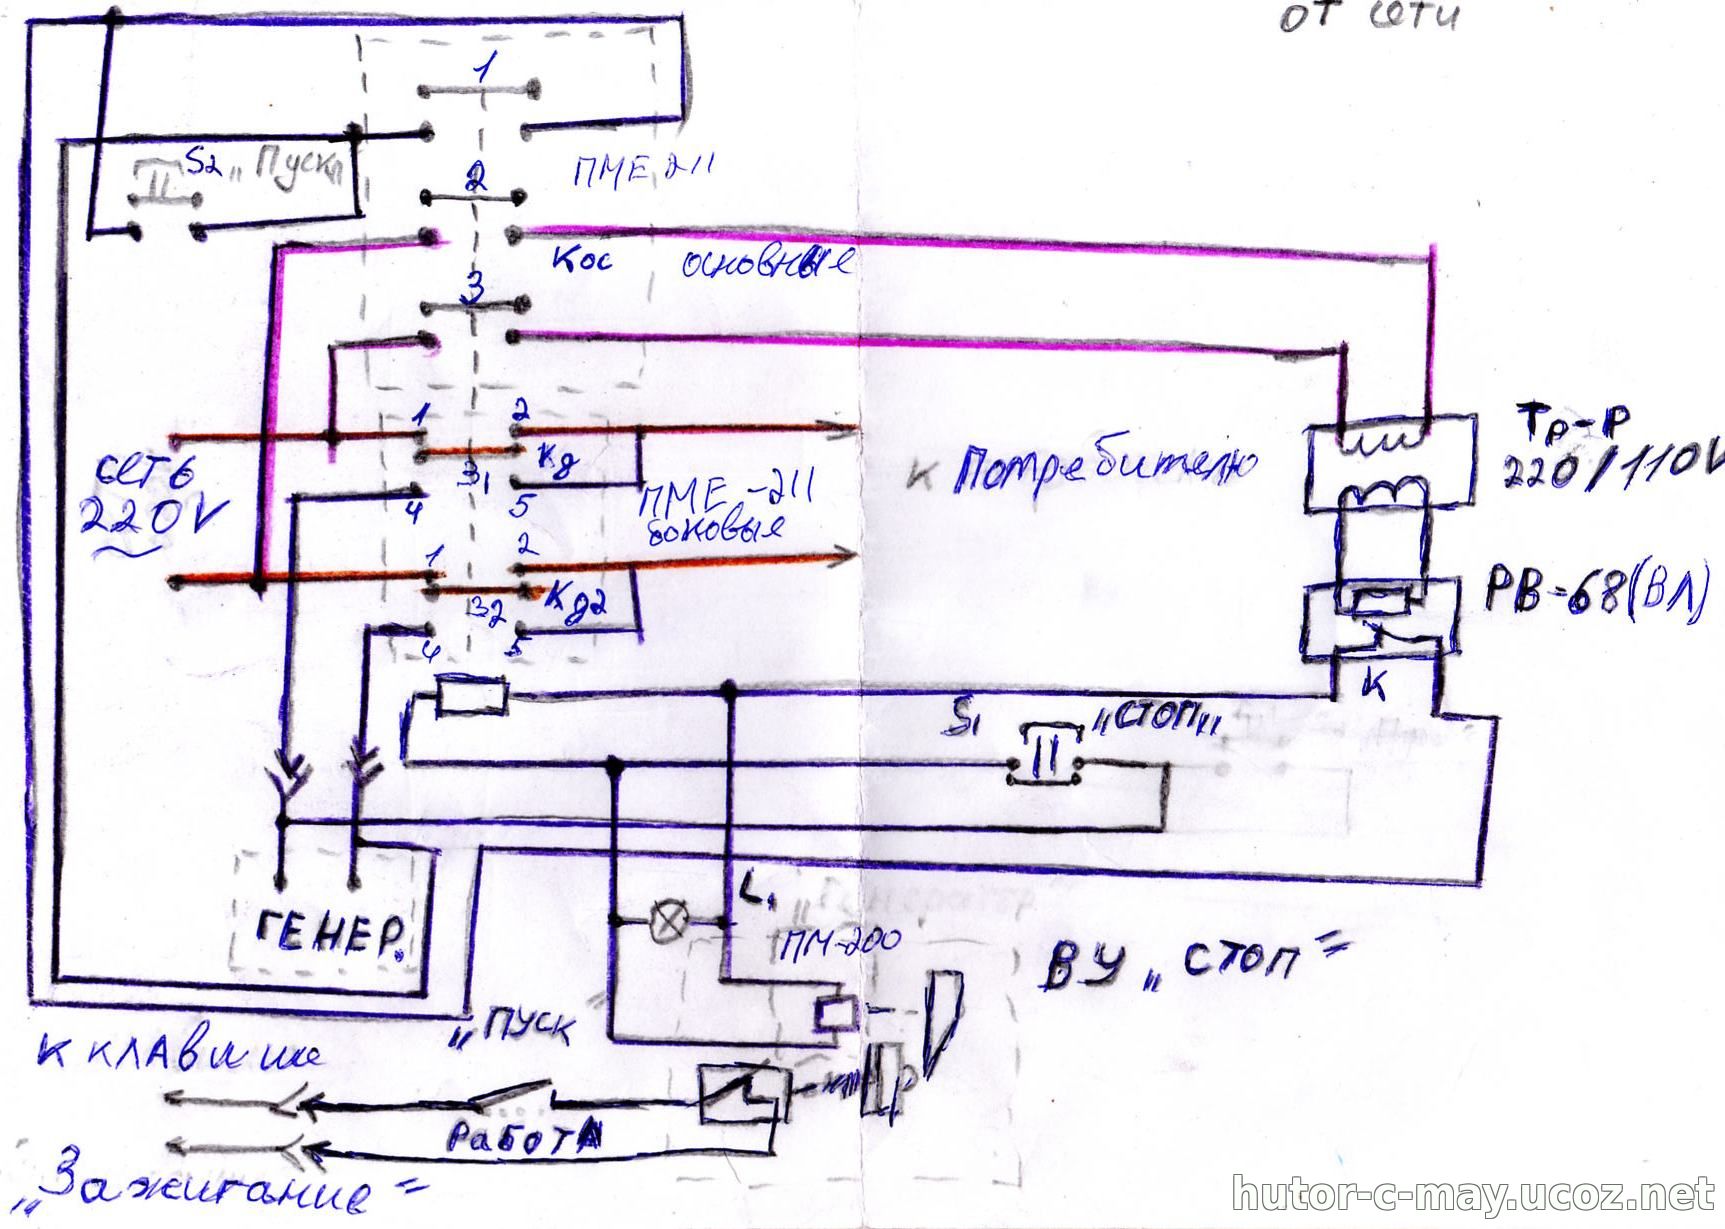 от сети
1
S2 „Пуск"
ПМЕ 211
2
Кос основные
3
1 2
Кд
сеть
220V
31
4 5
ПМЕ-211
боковые
к Потребителю
Тр-р
220/110V
1 2
32 Кд2
4 5
РВ-68(ВЛ)
К
S1 „СТОП"
ГЕНЕР.
L1
ПМ-200
ВУ „СТОП"
„ПУСК"
К КЛАВИШЕ
РАБОТА
„Зажигание"
hutor-c-may.ucoz.net